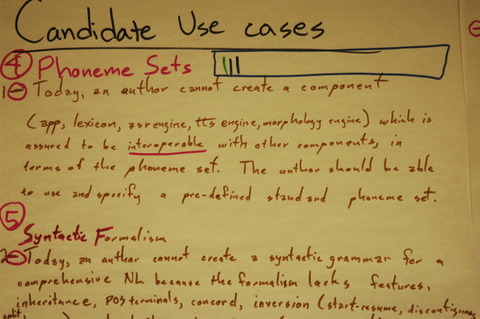 Candidate Use cases
4 Phoneme Sets
1 Today, an author cannot create a component
(app, lexicon, asr engine, tts engine, morphology engine) which is
assured to be interoperable with other components, in
terms of the phoneme set. The author should be able
to use and specify a pre-defined standard phoneme set.
5
Syntactic Formalism
2 Today, an author cannot create a syntactic grammar for a
comprehensive NL because the formalism lacks features,
inheritance, POS terminals, concord, inversion (start-resume, discontiguous